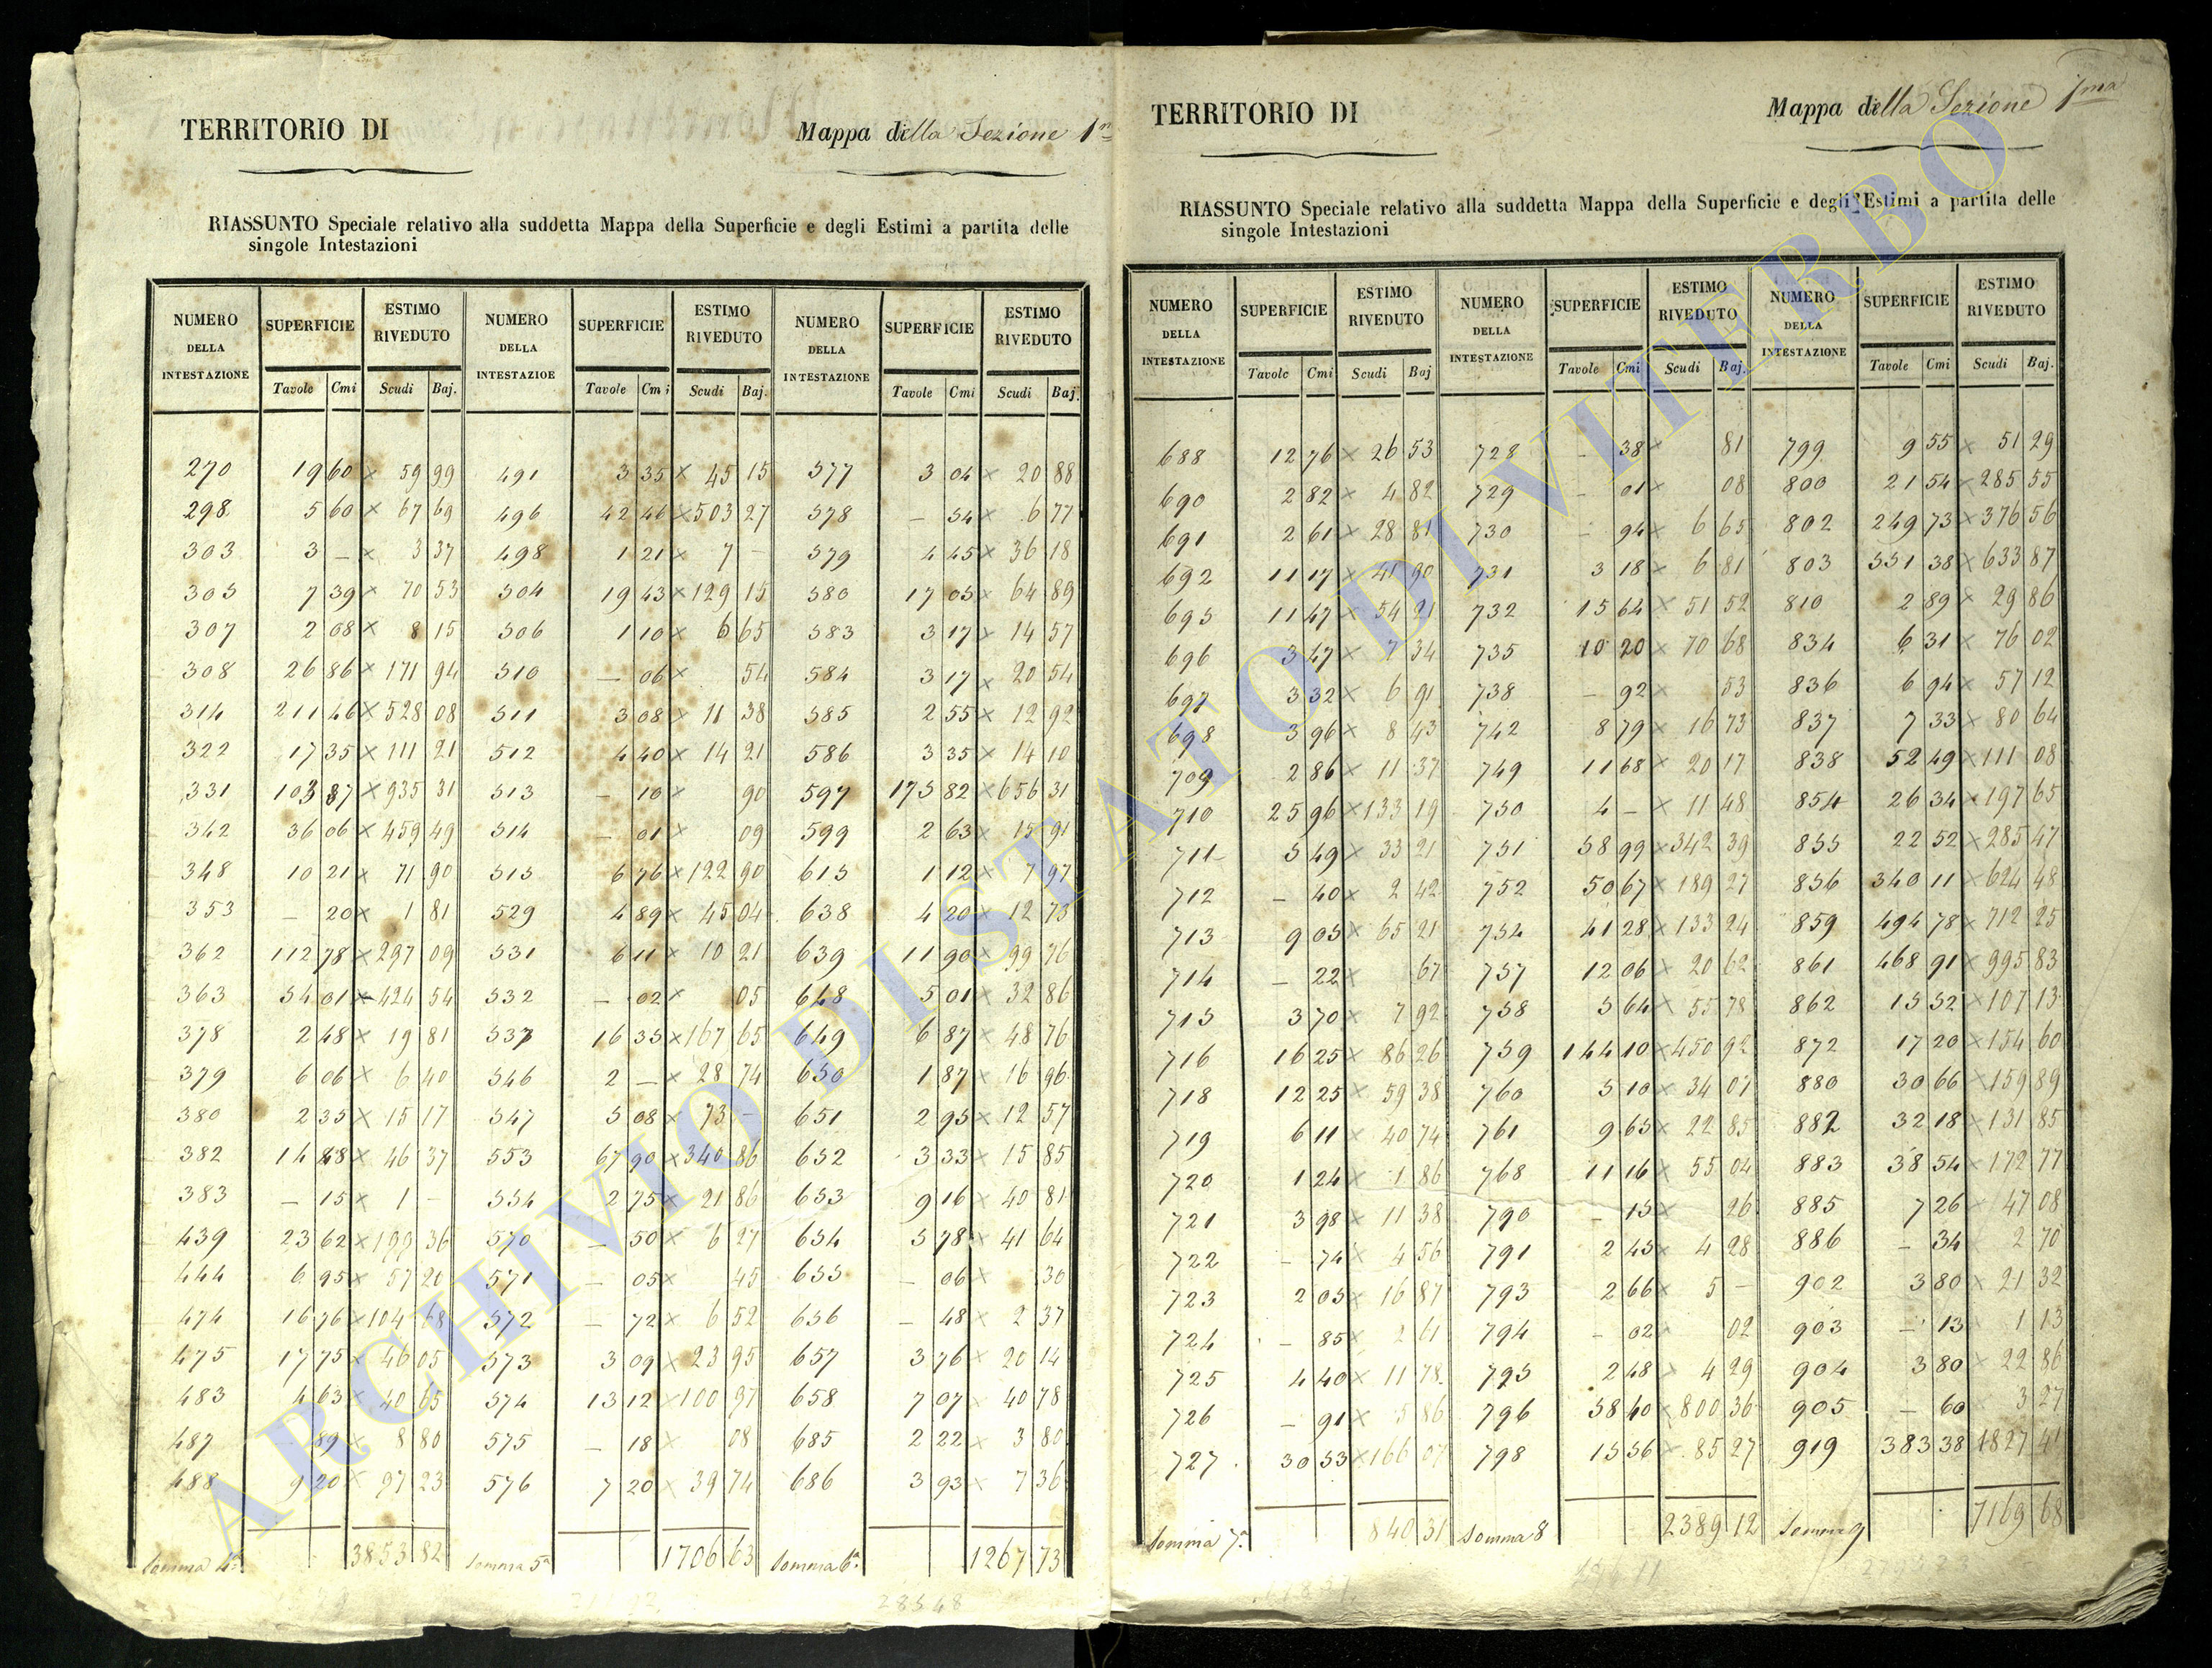 TERRITORIO DI
Mappa della Sezione 1a
RIASSUNTO Speciale relativo alla suddetta Mappa della Superficie e degli Estimi a partita delle
singole Intestazioni
NUMERO DELLA INTESTAZIONE SUPERFICIE ESTIMO RIVEDUTO NUMERO DELLA INTESTAZIOE SUPERFICIE ESTIMO RIVEDUTO NUMERO DELLA INTESTAZIONE SUPERFICIE ESTIMO RIVEDUTO
Tavole Cmi Scudi Baj. Tavole Cmi Scudi Baj. Tavole Cmi Scudi Baj.
270 19 60 × 59 99 491 3 35 × 45 15 577 3 04 × 20 88
298 5 60 × 67 69 496 42 46 × 503 27 578 – 54 × 6 77
303 3 – × 3 37 498 1 21 × 7 – 579 4 45 × 36 18
305 7 39 × 70 53 504 19 43 × 129 15 580 17 05 × 64 89
307 2 08 × 8 15 506 1 10 × 6 65 583 3 17 × 14 57
308 26 86 × 171 94 510 – 06 × 54 584 3 17 × 20 54
314 211 46 × 528 08 511 3 08 × 11 38 585 2 55 × 12 92
322 17 35 × 111 21 512 4 40 × 14 21 586 3 35 × 14 10
331 103 87 × 935 31 513 – 10 × 90 597 175 82 × 656 31
342 36 06 × 459 49 514 – 01 × 09 599 2 63 × 15 91
348 10 21 × 71 90 515 6 76 × 122 90 615 1 12 × 7 97
353 – 20 × 1 81 529 4 89 × 45 04 638 4 20 × 12 73
362 112 78 × 297 09 531 6 11 × 10 21 639 11 90 × 99 76
363 54 01 × 424 54 532 – 02 × 05 648 5 01 × 32 86
378 2 48 × 19 81 537 16 35 × 167 65 649 6 87 × 48 76
379 6 06 × 6 40 546 2 – × 28 74 650 1 87 × 16 96
380 2 35 × 15 17 547 5 08 × 73 – 651 2 95 × 12 57
382 14 48 × 46 37 553 67 90 × 340 86 652 3 33 × 15 85
383 – 15 × 1 – 554 2 75 × 21 86 653 9 16 × 40 81
439 23 62 × 199 36 570 – 50 × 6 27 654 5 78 × 41 64
444 6 95 × 57 20 571 – 05 × 45 655 – 06 × 30
474 16 76 × 104 68 572 – 72 × 6 52 656 – 48 × 2 37
475 17 75 × 46 05 573 3 09 × 23 95 657 3 76 × 20 14
483 4 63 × 40 65 574 13 12 × 100 97 658 7 07 × 40 78
487 – 89 × 8 80 575 – 18 × 08 685 2 22 × 3 80
488 9 20 × 97 23 576 7 20 × 39 74 686 3 93 × 7 36
Somma 4a 3853 82 Somma 5a 1706 63 Somma 6a 1267 73
28548
TERRITORIO DI
Mappa della Sezione 1ma
RIASSUNTO Speciale relativo alla suddetta Mappa della Superficie e degli Estimi a partita delle
singole Intestazioni
NUMERO DELLA INTESTAZIONE SUPERFICIE ESTIMO RIVEDUTO NUMERO DELLA INTESTAZIONE SUPERFICIE ESTIMO RIVEDUTO NUMERO DELLA INTESTAZIONE SUPERFICIE ESTIMO RIVEDUTO
Tavole Cmi Scudi Baj Tavole Cmi Scudi Baj. Tavole Cmi Scudi Baj.
688 12 76 × 26 53 728 – 38 × 81 799 9 55 × 51 29
690 2 82 × 4 82 729 – 01 × 08 800 21 54 × 285 55
691 2 61 × 28 81 730 – 94 × 6 65 802 249 73 × 376 56
692 11 17 × 41 90 731 3 18 × 6 81 803 551 38 × 633 87
695 11 47 × 54 21 732 15 64 × 51 52 810 2 89 × 29 86
696 3 47 × 7 34 735 10 20 × 70 68 834 6 31 × 76 02
697 3 32 × 6 91 738 – 92 × 53 836 6 94 × 57 12
698 3 96 × 8 43 742 8 79 × 16 73 837 7 33 × 80 64
709 2 86 × 11 37 749 11 68 × 20 17 838 52 49 × 111 08
710 25 96 × 133 19 750 4 – × 11 48 854 26 34 × 197 65
711 5 49 × 33 21 751 58 99 × 342 39 855 22 52 × 285 47
712 – 40 × 2 42 752 50 67 × 189 27 856 340 11 × 624 48
713 9 05 × 65 21 754 41 28 × 133 24 859 494 78 × 712 25
714 – 22 × 67 757 12 06 × 20 62 861 468 91 × 995 83
715 3 70 × 7 92 758 5 64 × 55 78 862 15 52 × 107 13
716 16 25 × 86 26 759 144 10 × 450 92 872 17 20 × 154 60
718 12 25 × 59 38 760 5 10 × 34 07 880 30 66 × 159 89
719 6 11 × 40 74 761 9 65 × 22 85 882 32 18 × 131 85
720 1 24 × 1 86 768 11 16 × 55 04 883 38 54 × 172 77
721 3 98 × 11 38 790 – 15 × 26 885 7 26 × 47 08
722 – 74 × 4 56 791 2 45 × 4 28 886 – 34 × 2 70
723 2 05 × 16 87 793 2 66 × 5 – 902 3 80 × 21 32
724 – 85 × 2 61 794 – 02 × 02 903 – 13 × 1 13
725 4 40 × 11 78 795 2 48 × 4 29 904 3 80 × 22 86
726 – 91 × 5 86 796 58 40 × 800 36 905 – 60 × 3 27
727 30 53 × 166 07 798 15 56 × 85 27 919 383 38 1827 41
Somma 7a 840 31 Somma 8 2389 12 Somma 9 7169 68
ARCHIVIO DI STATO DI VITERBO